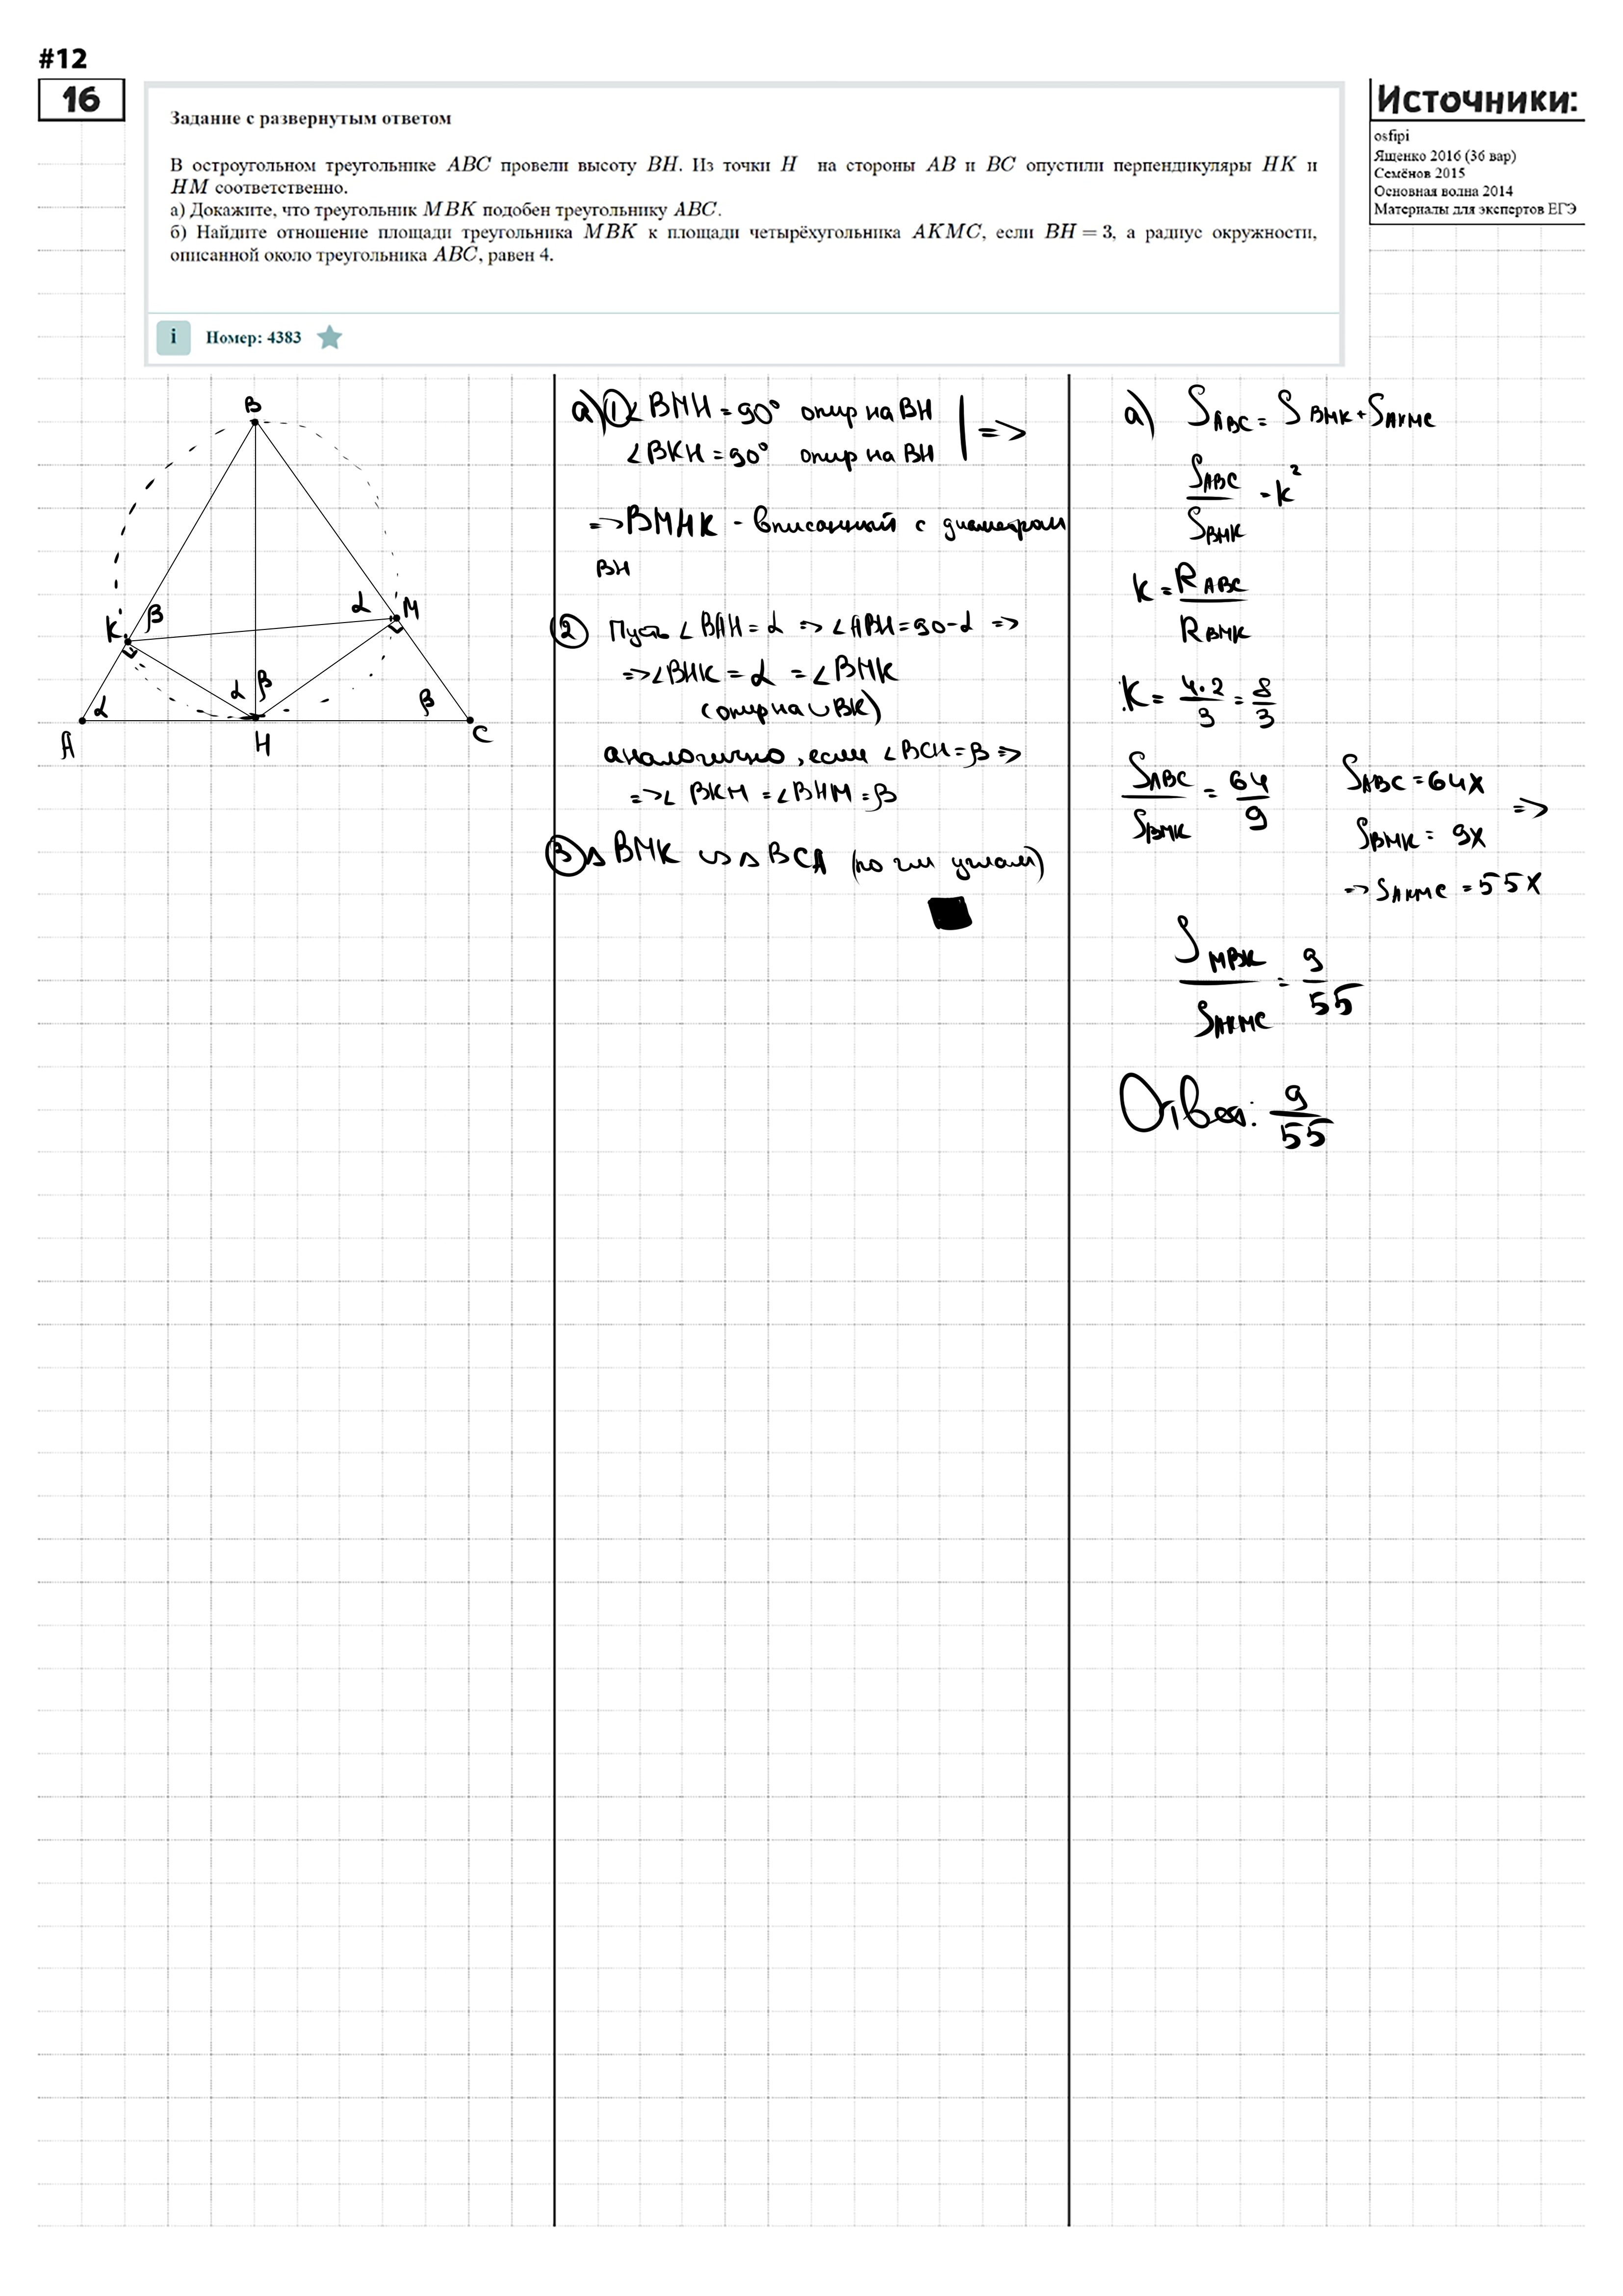 #12
16
Задание с развернутым ответом
В остроугольном треугольнике ABC провели высоту BH. Из точки H на стороны AB и BC опустили перпендикуляры HK и
HM соответственно.
а) Докажите, что треугольник MBK подобен треугольнику ABC.
б) Найдите отношение площади треугольника MBK к площади четырёхугольника AKMC, если BH = 3, а радиус окружности,
описанной около треугольника ABC, равен 4.
i Номер: 4383
Источники:
osfipi
Ященко 2016 (36 вар)
Семёнов 2015
Основная волна 2014
Материалы для экспертов ЕГЭ
B
K β α M
α α β β
A H C
а) ① ∠BMH = 90° опир на BH
∠BKH = 90° опир на BH | =>
=> BMHK - вписанный с диаметром
BH
② Пусть ∠BAH = α => ∠ABH = 90-α =>
=> ∠BHK = α = ∠BMK
(опир на ∪BK)
аналогично, если ∠BCH = β =>
=> ∠BKM = ∠BHM = β
③ △BMK ∽ △BCA (по 2м углам)
а) S ABC = S BMK + S AKMC
S ABC / S BMK = k²
k = R ABC / R BMK
k = 4·2 / 3 = 8/3
S ABC / S BMK = 64/9
S ABC = 64x
S BMK = 9x =>
=> S AKMC = 55x
S MBK / S AKMC = 9/55
Ответ: 9/55